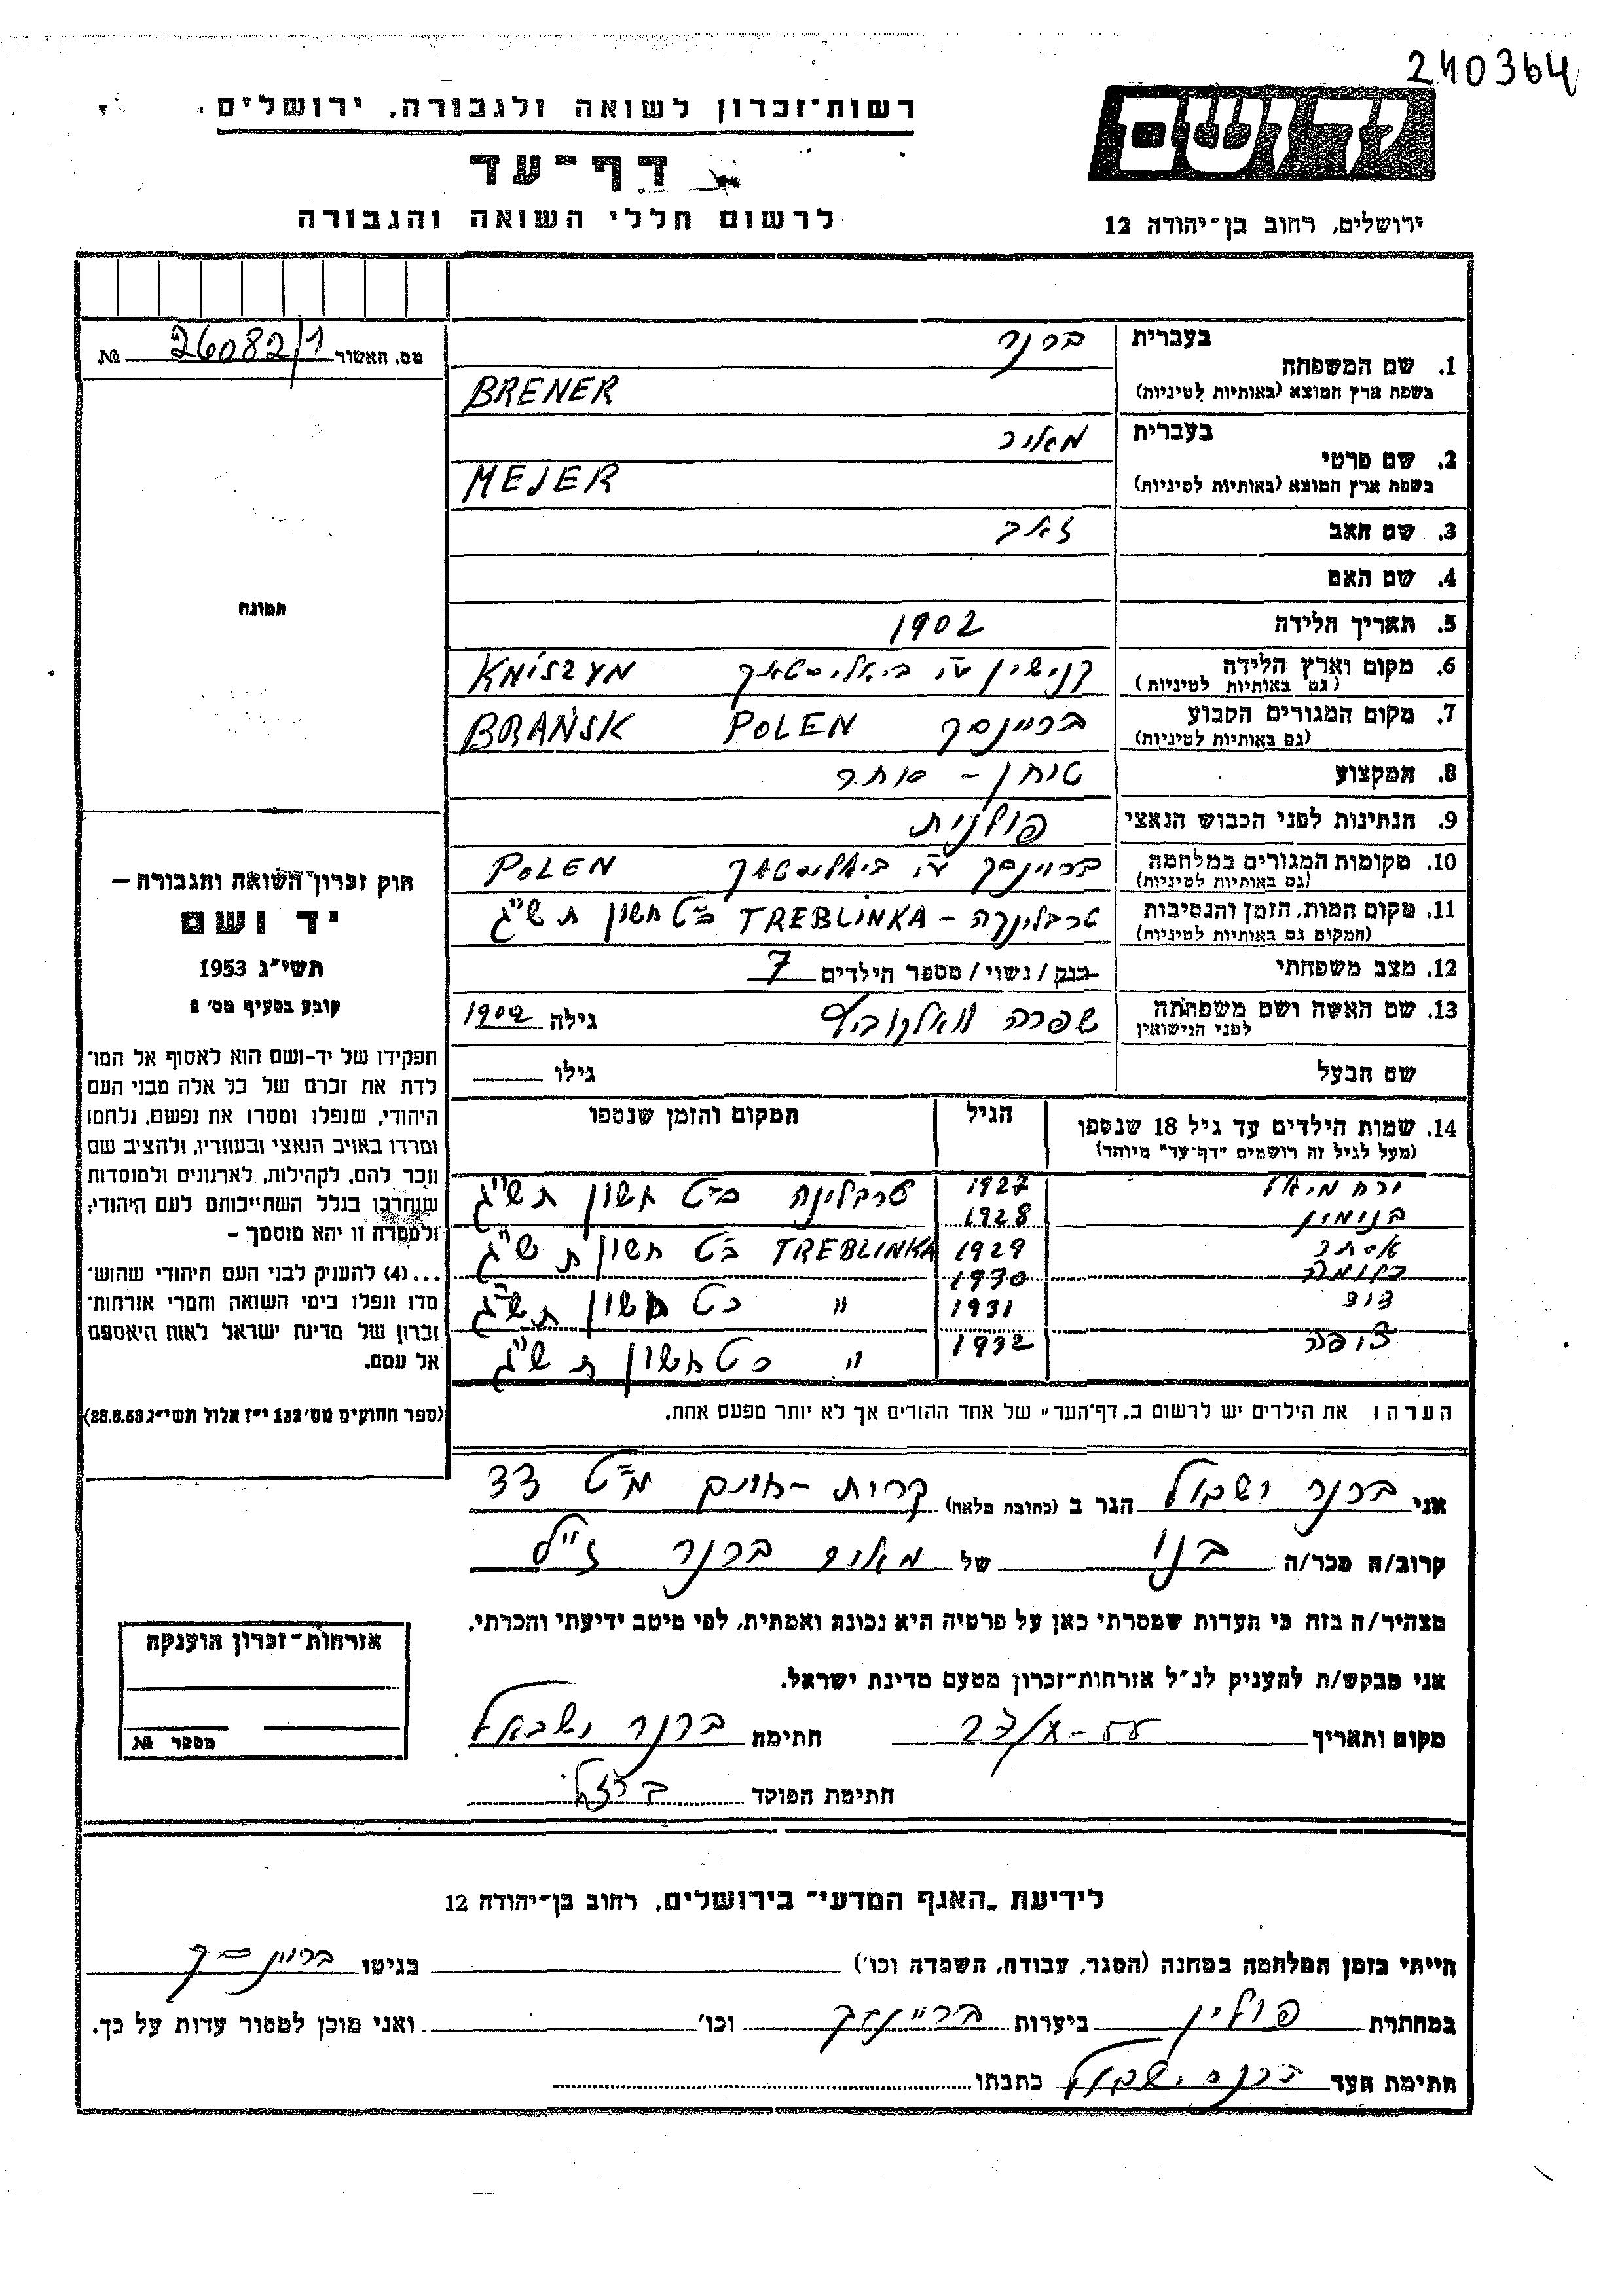 240364
רשות־זכרון לשואה ולגבורה, ירושלים
דף־עד
לרשום חללי השואה והגבורה
יד ושם
ירושלים, רחוב בן־יהודה 12
מס. האשור 26082/1 №
תמונה
חוק זכרון השואה והגבורה —
יד ושם
תשי״ג 1953
קובע בסעיף מס׳ 2
תפקידו של יד-ושם הוא לאסוף אל המו־
לדת את זכרם של כל אלה מבני העם
היהודי, שנפלו ומסרו את נפשם, נלחמו
ומרדו באויב הנאצי ובעוזריו, ולהציב שם
וזכר להם, לקהילות, לארגונים ולמוסדות
שנחרבו בגלל השתייכותם לעם היהודי;
ולמטרה זו יהא מוסמך —
...(4) להעניק לבני העם היהודי שהוש־
מדו ונפלו בימי השואה והמרי אזרחות־
זכרון של מדינת ישראל לאות היאספם
אל עמם.
(ספר החוקים מס׳ 132 י״ז אלול תשי״ג 28.8.53)
1. שם המשפחה בעברית ברנר
בשפת ארץ המוצא (באותיות לטיניות) BRENER
2. שם פרטי בעברית מאיר
בשפת ארץ המוצא (באותיות לטיניות) MEJER
3. שם האב זאב
4. שם האם
5. תאריך הלידה 1902
6. מקום וארץ הלידה (גם באותיות לטיניות) קנישין ע״י ביאליסטאק KNISZYN
7. מקום המגורים הקבוע (גם באותיות לטיניות) בריינסק POLEN BRAŃSK
8. המקצוע טוחן - סוחר
9. הנתינות לפני הכבוש הנאצי פולנית
10. מקומות המגורים במלחמה (גם באותיות לטיניות) בריינסק ע״י ביאליסטאק POLEN
11. מקום המות, הזמן והנסיבות (המקום גם באותיות לטיניות) טרבלינקה - TREBLINKA כ״ט חשון תש״ג
12. מצב משפחתי רווק/נשוי/מספר הילדים 7
13. שם האשה ושם משפחתה לפני הנישואין שפרה גילה 1902
שם הבעל גילו
14. שמות הילדים עד גיל 18 שנספו הגיל המקום והזמן שנספו
(מעל לגיל זה רושמים "דף־עד" מיוחד)
ירחמיאל 1927 טרבלינקה כ״ט חשון תש״ג
בנימין 1928
אסתר 1929 TREBLINKA כ״ט חשון תש״ג
נחומה 1930
דוד 1931 ״ כ״ט חשון תש״ג
צופה 1932 ״ כ״ט חשון תש״ג
הערה: את הילדים יש לרשום ב„דף־העד״ של אחד ההורים אך לא יותר מפעם אחת.
אני ברנר ישראל הגר ב (כתובת מלאה) קרית-אונו מ״ט 33
קרוב/ה מכר/ה בנו של מאיר ברנר ז״ל
מצהיר/ה בזה כי העדות שמסרתי כאן על פרטיה היא נכונה ואמתית, לפי מיטב ידיעתי והכרתי.
אני מבקש/ת להעניק לנ״ל אזרחות־זכרון מטעם מדינת ישראל.
מקום ותאריך 27/X-55 חתימה ברנר ישראל
חתימת הפוקד
אזרחות־זכרון הוענקה
מספר №
לידיעת „האגף המדעי״ בירושלים, רחוב בן־יהודה 12
הייתי בזמן המלחמה במחנה (הסגר, עבודה, השמדה וכו׳) בגיטו בריינסק
במחתרת פולין ביערות בריינסק וכו׳ ואני מוכן למסור עדות על כך.
חתימת העד ברנר ישראל כתבתו